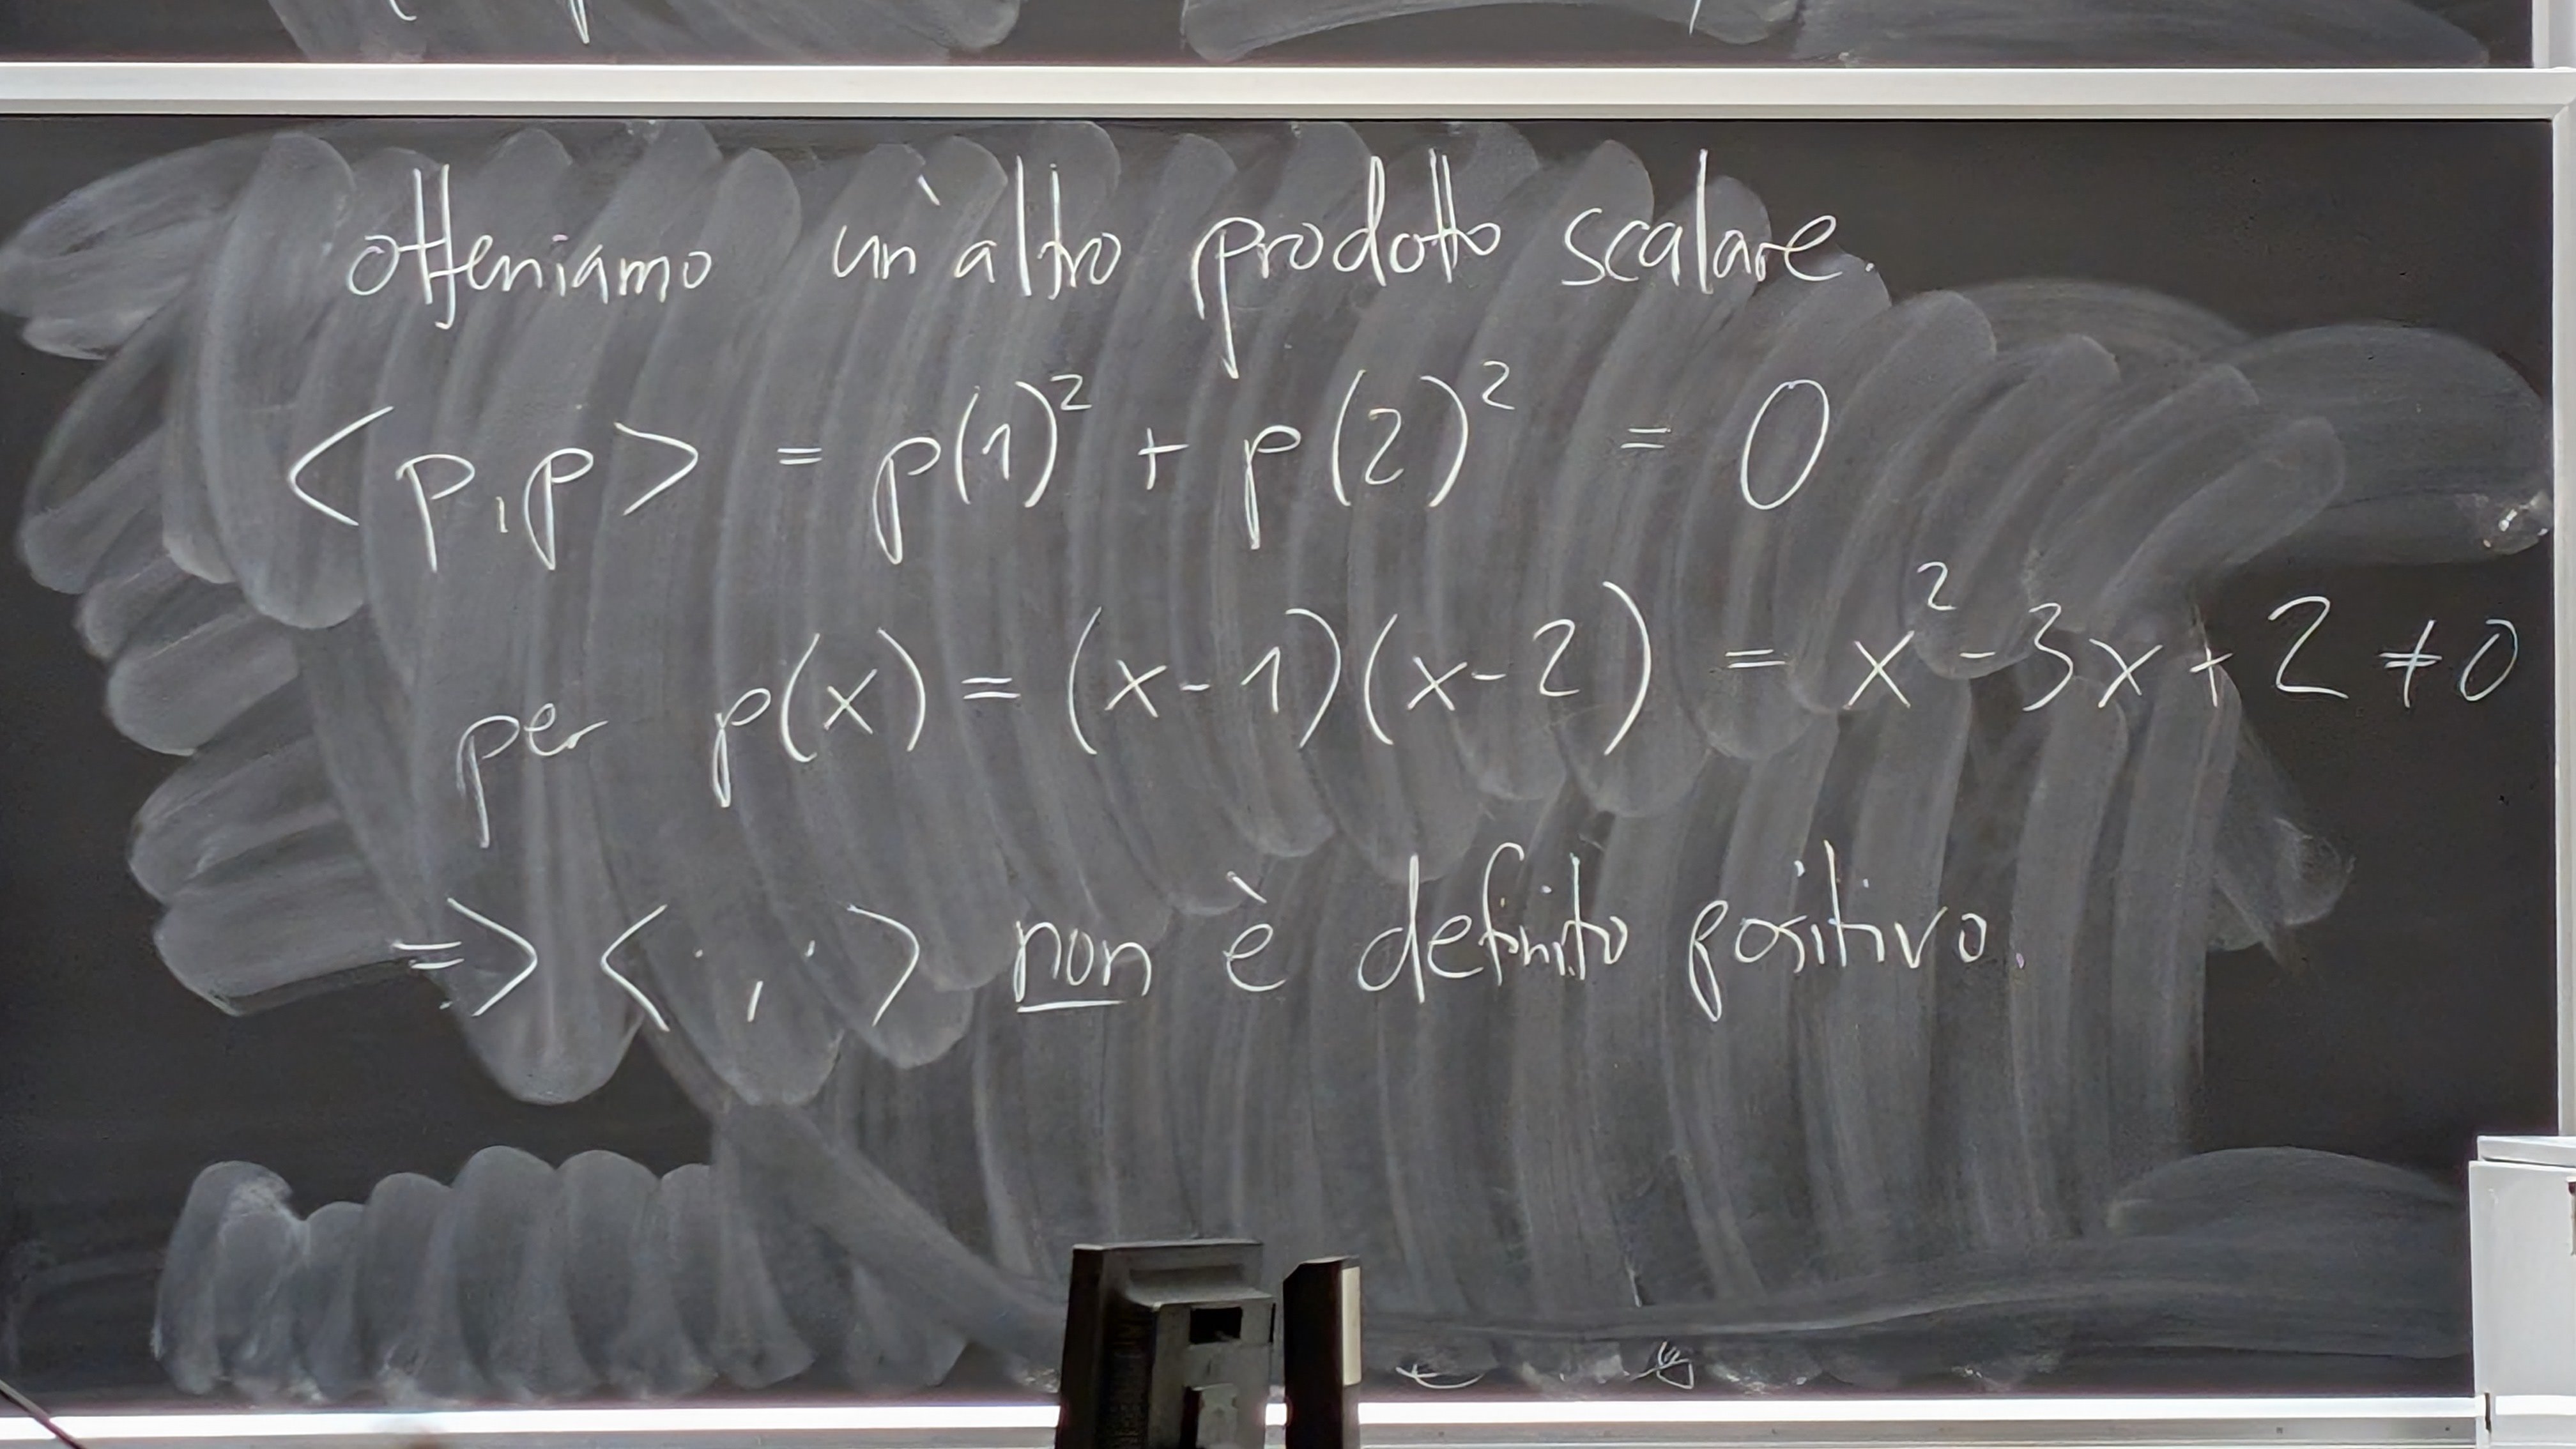 otteniamo un'altro prodotto scalare.
<p,p> = p(1)² + p(2)² = 0
per p(x) = (x-1)(x-2) = x²-3x+2 ≠0
=> <·,·> non è definito positivo.